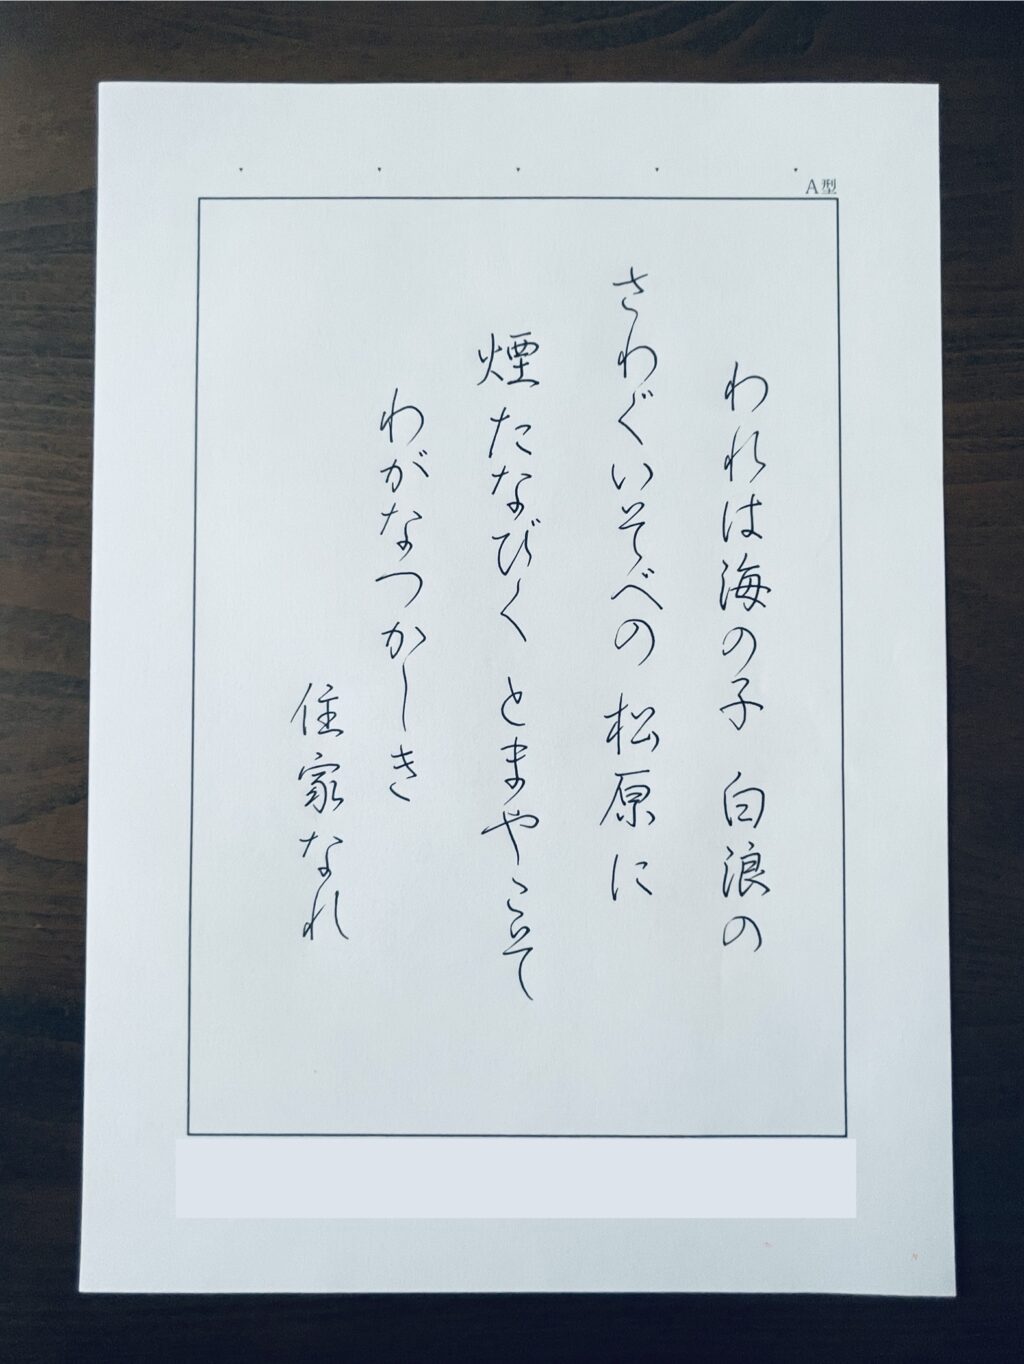 A型
われは海の子 白浪の
さわぐいそべの 松原に
煙たなびく とまやこそ
わがなつかしき
住家なれ